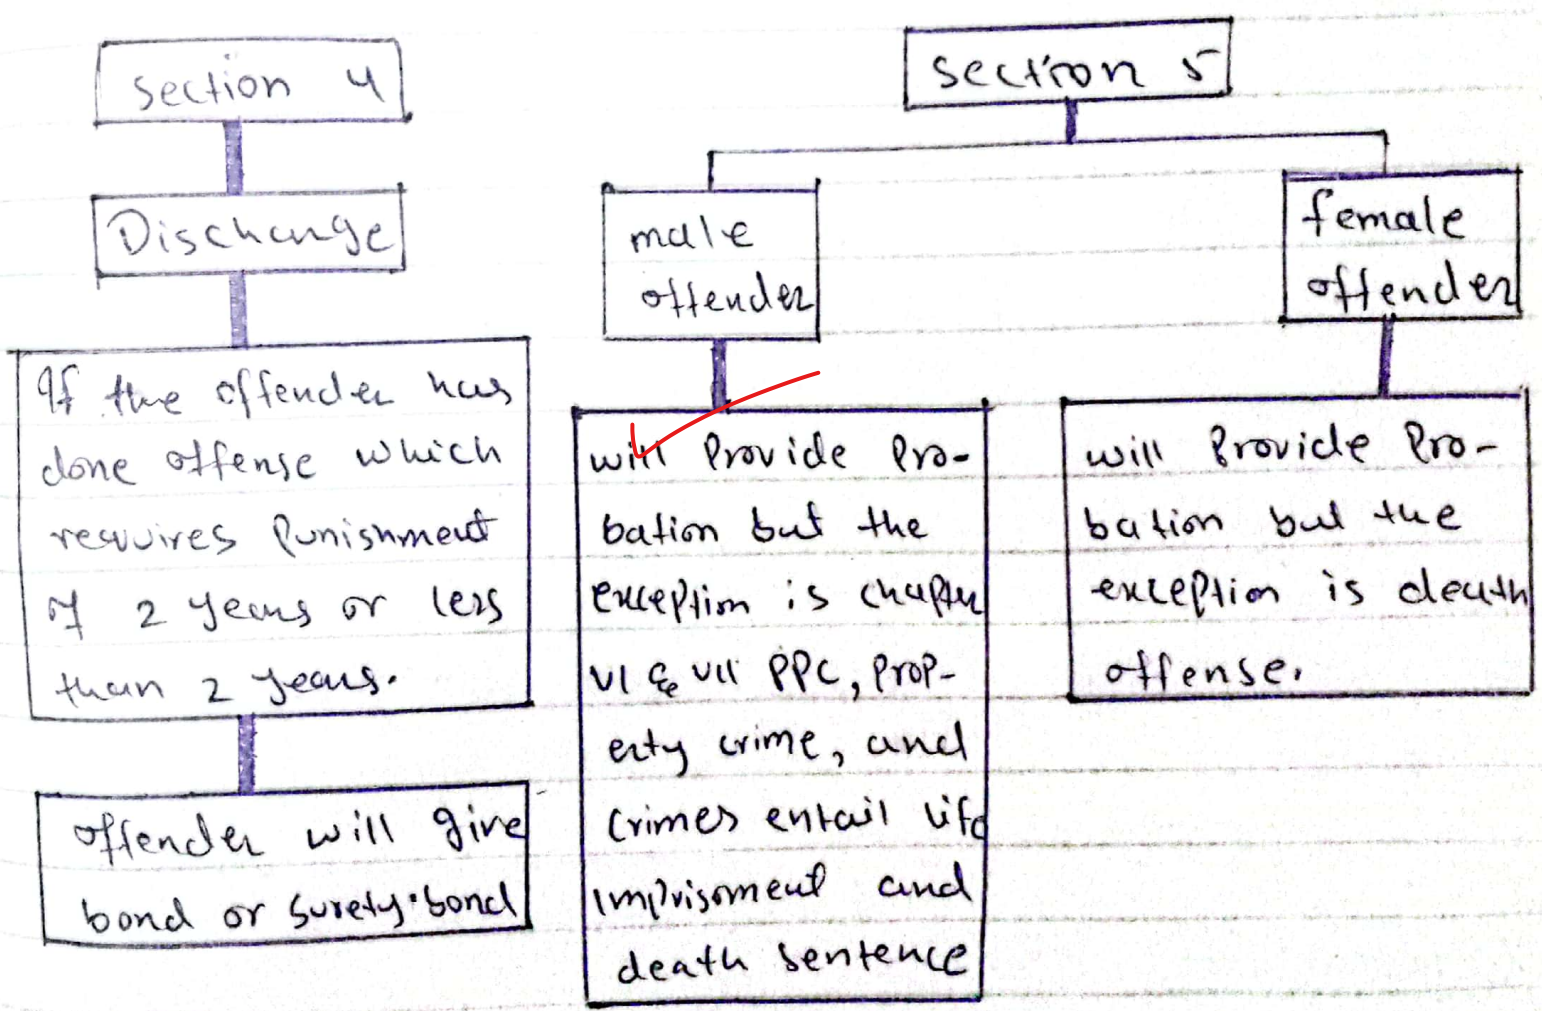 Section 4
Discharge
If the offender has
done offense which
requires Punishment
of 2 years or less
than 2 years.
offender will give
bond or surety.bond
Section 5
male
offender
will Provide Pro-
bation but the
exception is chapter
VI & VII PPC, Prop-
erty crime, and
Crimes entail life
imprisoment and
death sentence
female
offender
will Provide Pro-
bation but the
exception is death
offense.